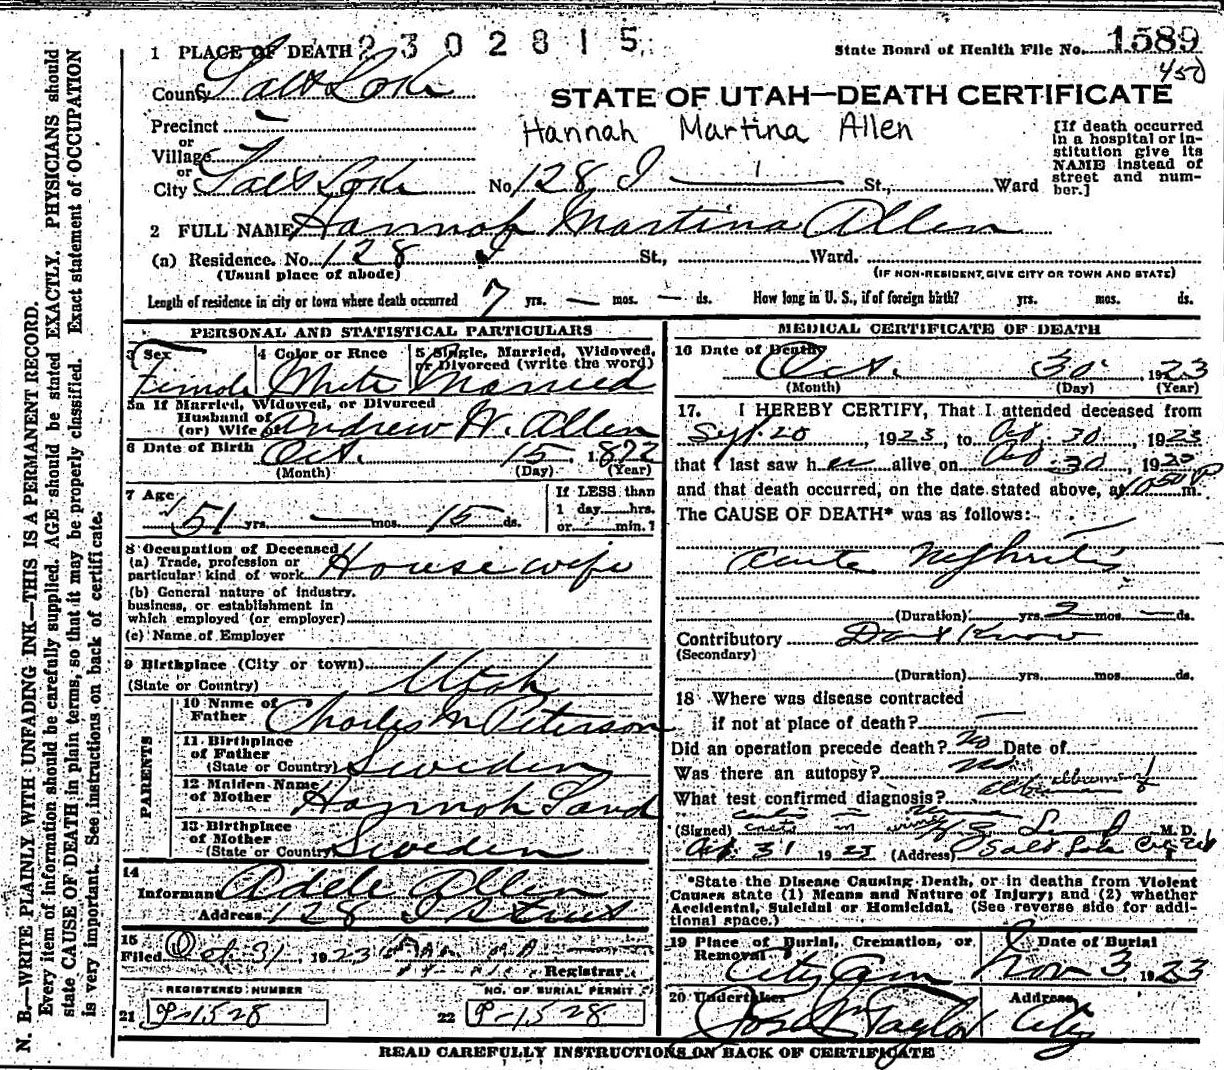 1 PLACE OF DEATH 2302815 State Board of Health File No. 1589
450
County Salt Lake
STATE OF UTAH—DEATH CERTIFICATE
Precinct —
Hannah Martina Allen
or
Village
or
City Salt Lake No. 128 I St., Ward
[If death occurred
in a hospital or in-
stitution give its
NAME instead of
street and num-
ber.]
2 FULL NAME Hannah Martina Allen
(a) Residence. No. 128 I St., Ward.
(Usual place of abode) (IF NON-RESIDENT, GIVE CITY OR TOWN AND STATE)
Length of residence in city or town where death occurred 7 yrs. — mos. — ds. How long in U. S., if of foreign birth? yrs. mos. ds.
PERSONAL AND STATISTICAL PARTICULARS
3 Sex Female
4 Color or Race White
5 Single, Married, Widowed,
or Divorced (write the word)
Married
5a If Married, Widowed, or Divorced
Husband of
(or) Wife of Andrew W. Allen
6 Date of Birth Oct. 15, 1872
(Month) (Day) (Year)
7 Age 51 yrs. — mos. 15 ds.
If LESS than
1 day hrs.
or min.?
8 Occupation of Deceased
(a) Trade, profession or
particular kind of work Housewife
(b) General nature of industry,
business, or establishment in
which employed (or employer)
(c) Name of Employer
9 Birthplace (City or town)
(State or Country) Utah
PARENTS
10 Name of
Father Charles M Peterson
11 Birthplace
of Father
(State or Country) Sweden
12 Maiden Name
of Mother Hannah Land
13 Birthplace
of Mother
(State or Country) Sweden
14
Informant Adele Allen
Address 128 I Street
15
Filed Oct. 31, 1923
Registrar
REGISTERED NUMBER NO. OF BURIAL PERMIT
21 P-1528 22 P-1528
MEDICAL CERTIFICATE OF DEATH
16 Date of Death Oct. 30, 1923
(Month) (Day) (Year)
17. I HEREBY CERTIFY, That I attended deceased from
Sept. 20, 1923, to Oct. 30, 1923
that I last saw her alive on Oct 30, 1923
and that death occurred, on the date stated above, at 10:50 P m.
The CAUSE OF DEATH* was as follows:
Acute Nephritis
(Duration) yrs. 2 mos. — ds.
Contributory Don't Know
(Secondary)
(Duration) yrs. mos. ds.
18 Where was disease contracted
if not at place of death? —
Did an operation precede death? No Date of
Was there an autopsy? No
What test confirmed diagnosis? albumen &
casts in urine
(Signed) M. D.
Oct. 31 1923 (Address) Salt Lake City Utah
*State the Disease Causing Death, or in deaths from Violent
Causes state (1) Means and Nature of Injury; and (2) whether
Accidental, Suicidal or Homicidal. (See reverse side for addi-
tional space.)
19 Place of Burial, Cremation, or
Removal City Cem
Date of Burial
Nov 3, 1923
20 Undertaker Jos. Wm Taylor
Address City
READ CAREFULLY INSTRUCTIONS ON BACK OF CERTIFICATE
N. B.—WRITE PLAINLY WITH UNFADING INK—THIS IS A PERMANENT RECORD.
Every item of information should be carefully supplied. AGE should be stated EXACTLY. PHYSICIANS should
state CAUSE OF DEATH in plain terms, so that it may be properly classified. Exact statement of OCCUPATION
is very important. See instructions on back of certificate.